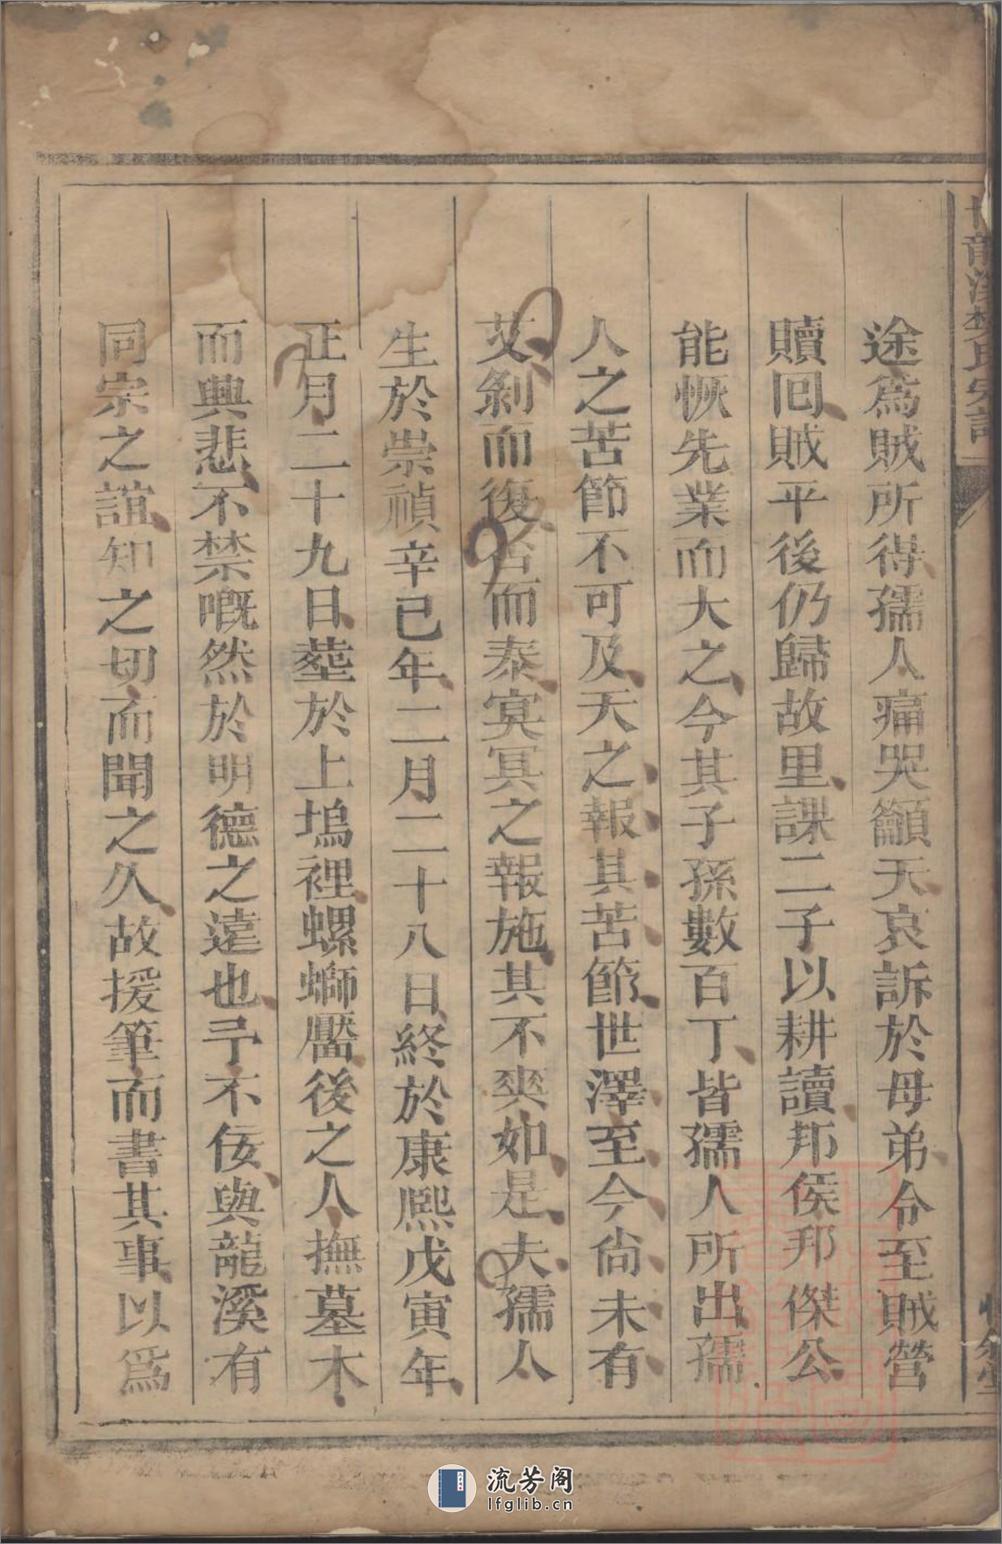 龍溪 氏宗譜
途為賊所得孺人痛哭籲天哀訴於母弟令至賊營
贖囘賊平後仍歸故里課二子以耕讀邦侯邦傑公
能恢先業而大之今其子孫數百丁皆孺人所出孺
人之苦節不可及天之報其苦節世澤至今尚未有
艾剝而復否而泰冥冥之報施其不爽如是夫孺人
生於崇禎辛巳年二月二十八日終於康熙戊寅年
正月二十九日塟於上塢裡螺螄靨後之人撫墓木
而興悲不禁嘅然於明德之遠也予不佞與龍溪有
同宗之誼知之切而聞之久故援筆而書其事以為
流芳阁
lfglib.cn